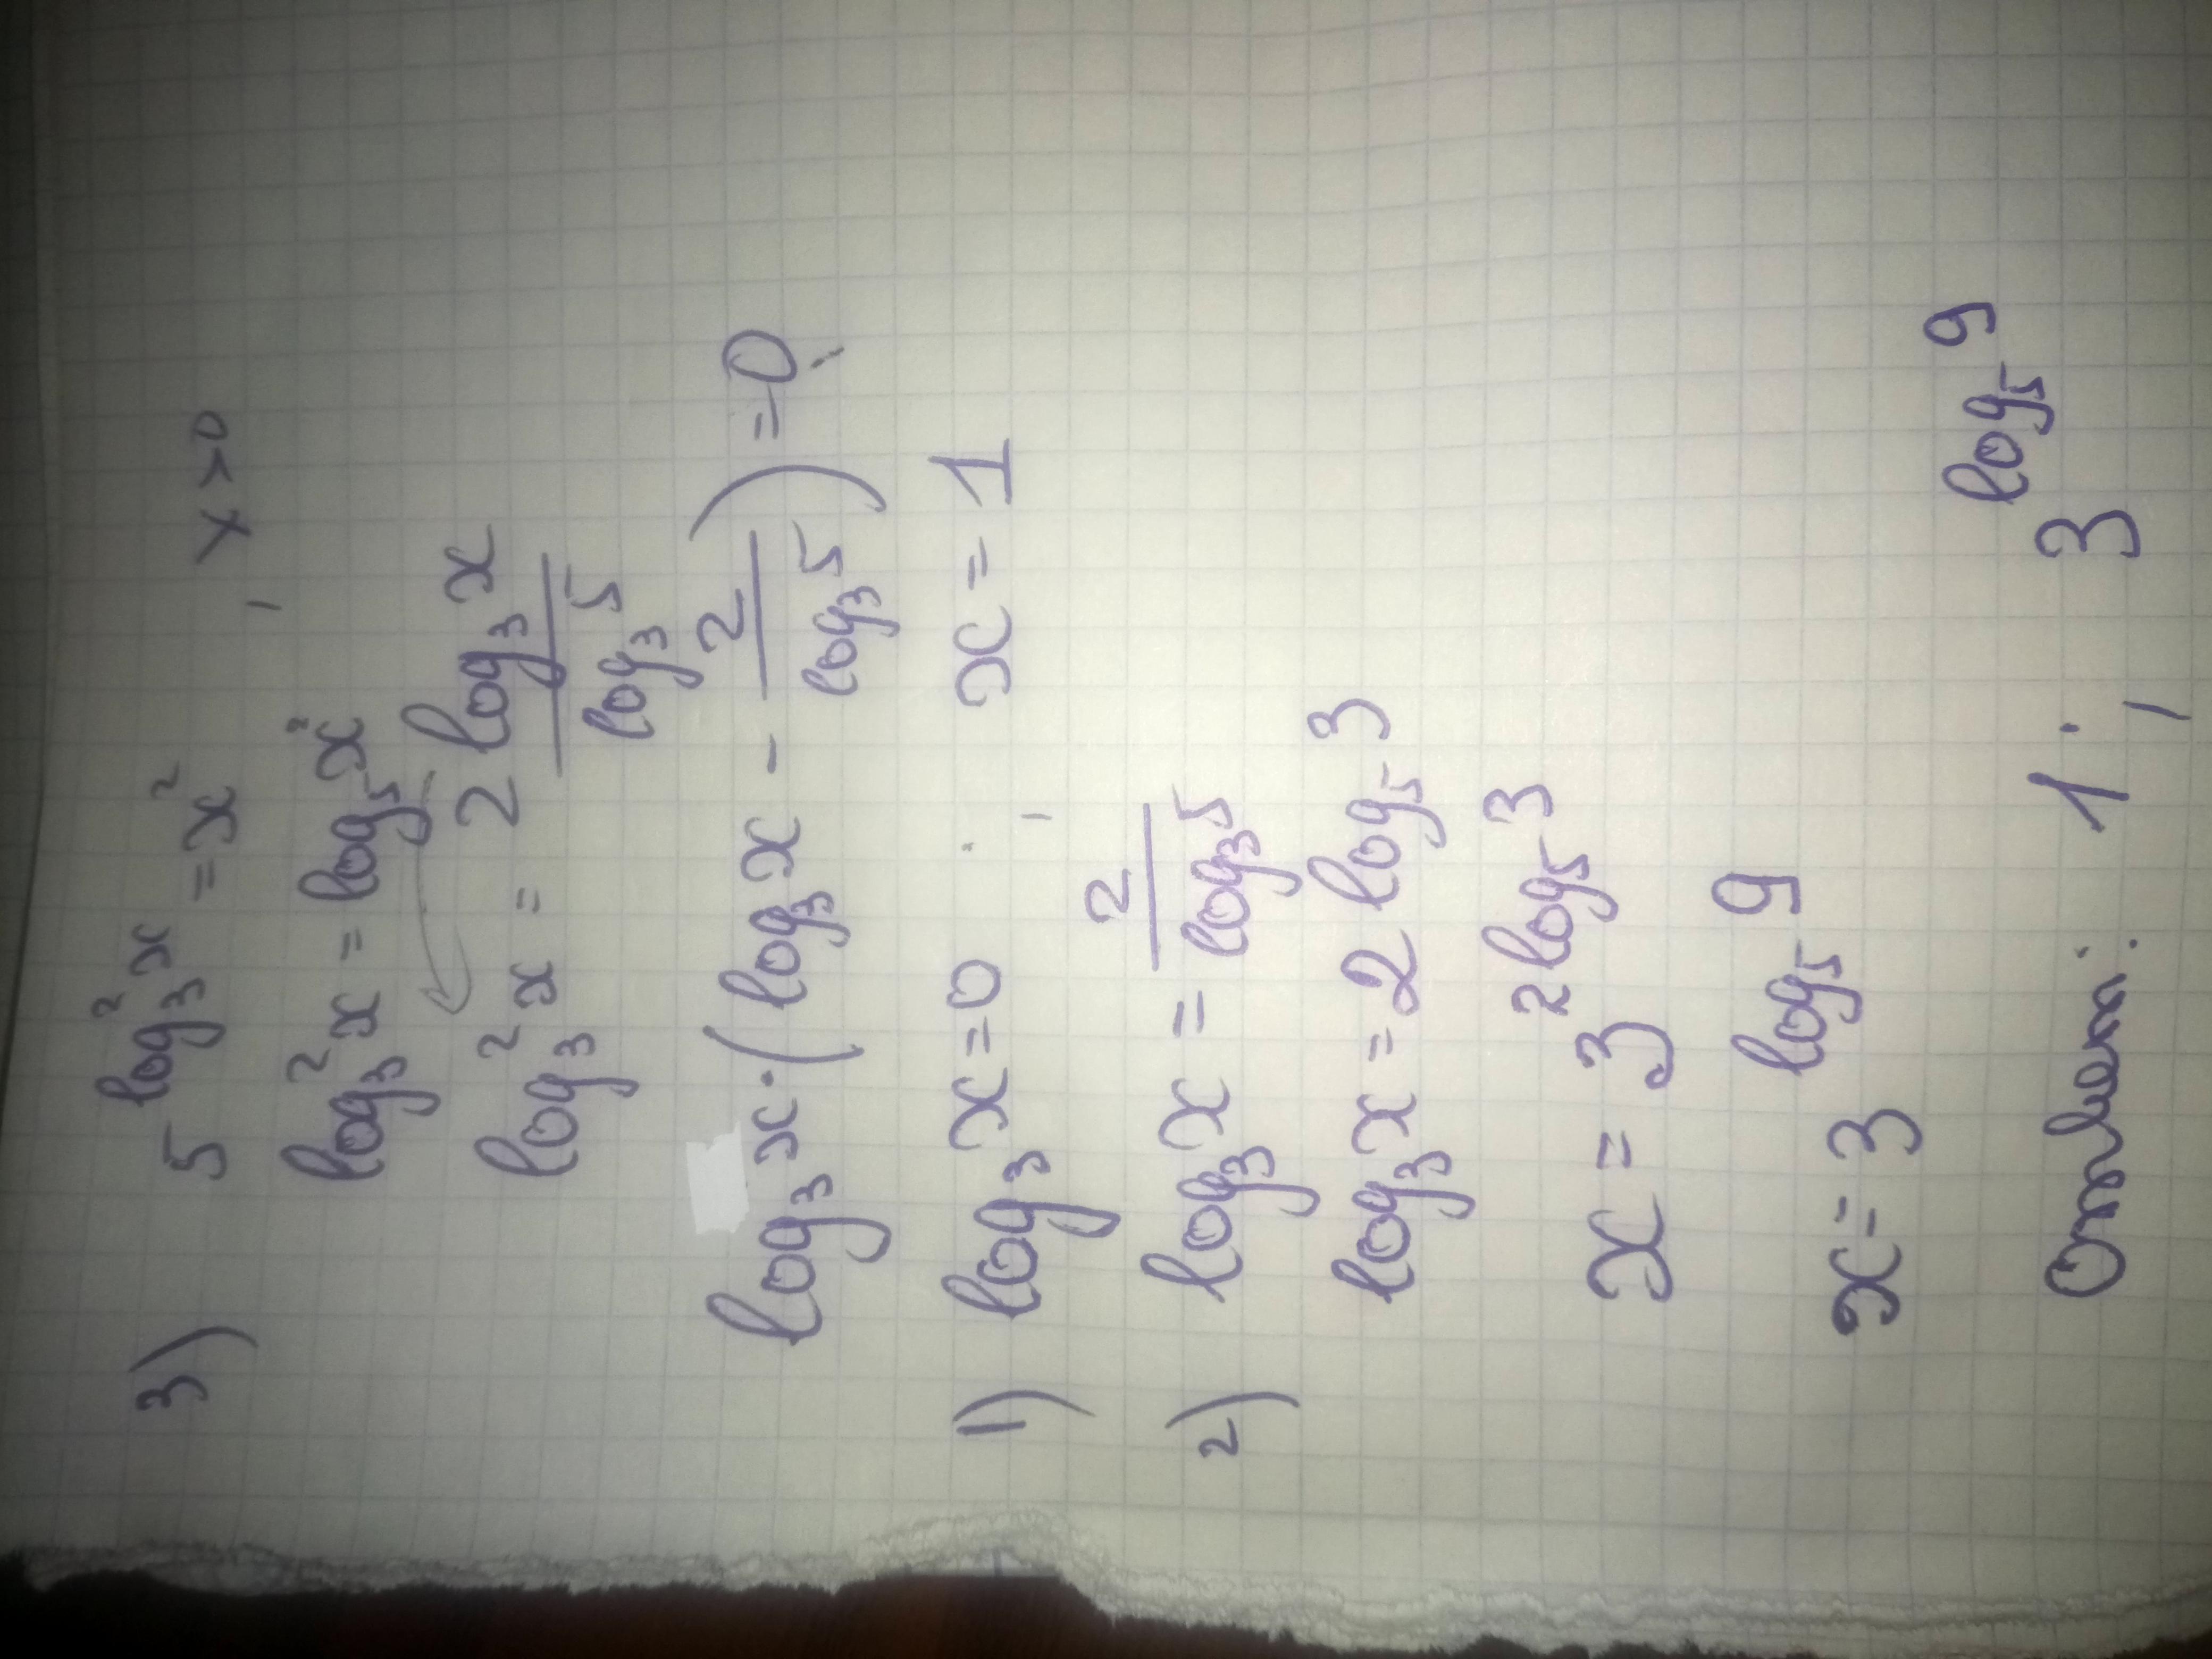 3) 5^{log_3^2 x} = x^2, x>0
log_3^2 x = log_5 x^2
log_3^2 x = 2 \frac{log_3 x}{log_3 5}
log_3 x · (log_3 x - \frac{2}{log_3 5}) = 0
1) log_3 x = 0 ; x = 1
2) log_3 x = \frac{2}{log_3 5}
log_3 x = 2 log_5 3
x = 3^{2 log_5 3}
x = 3^{log_5 9}
Ответ: 1 ; 3^{log_5 9}